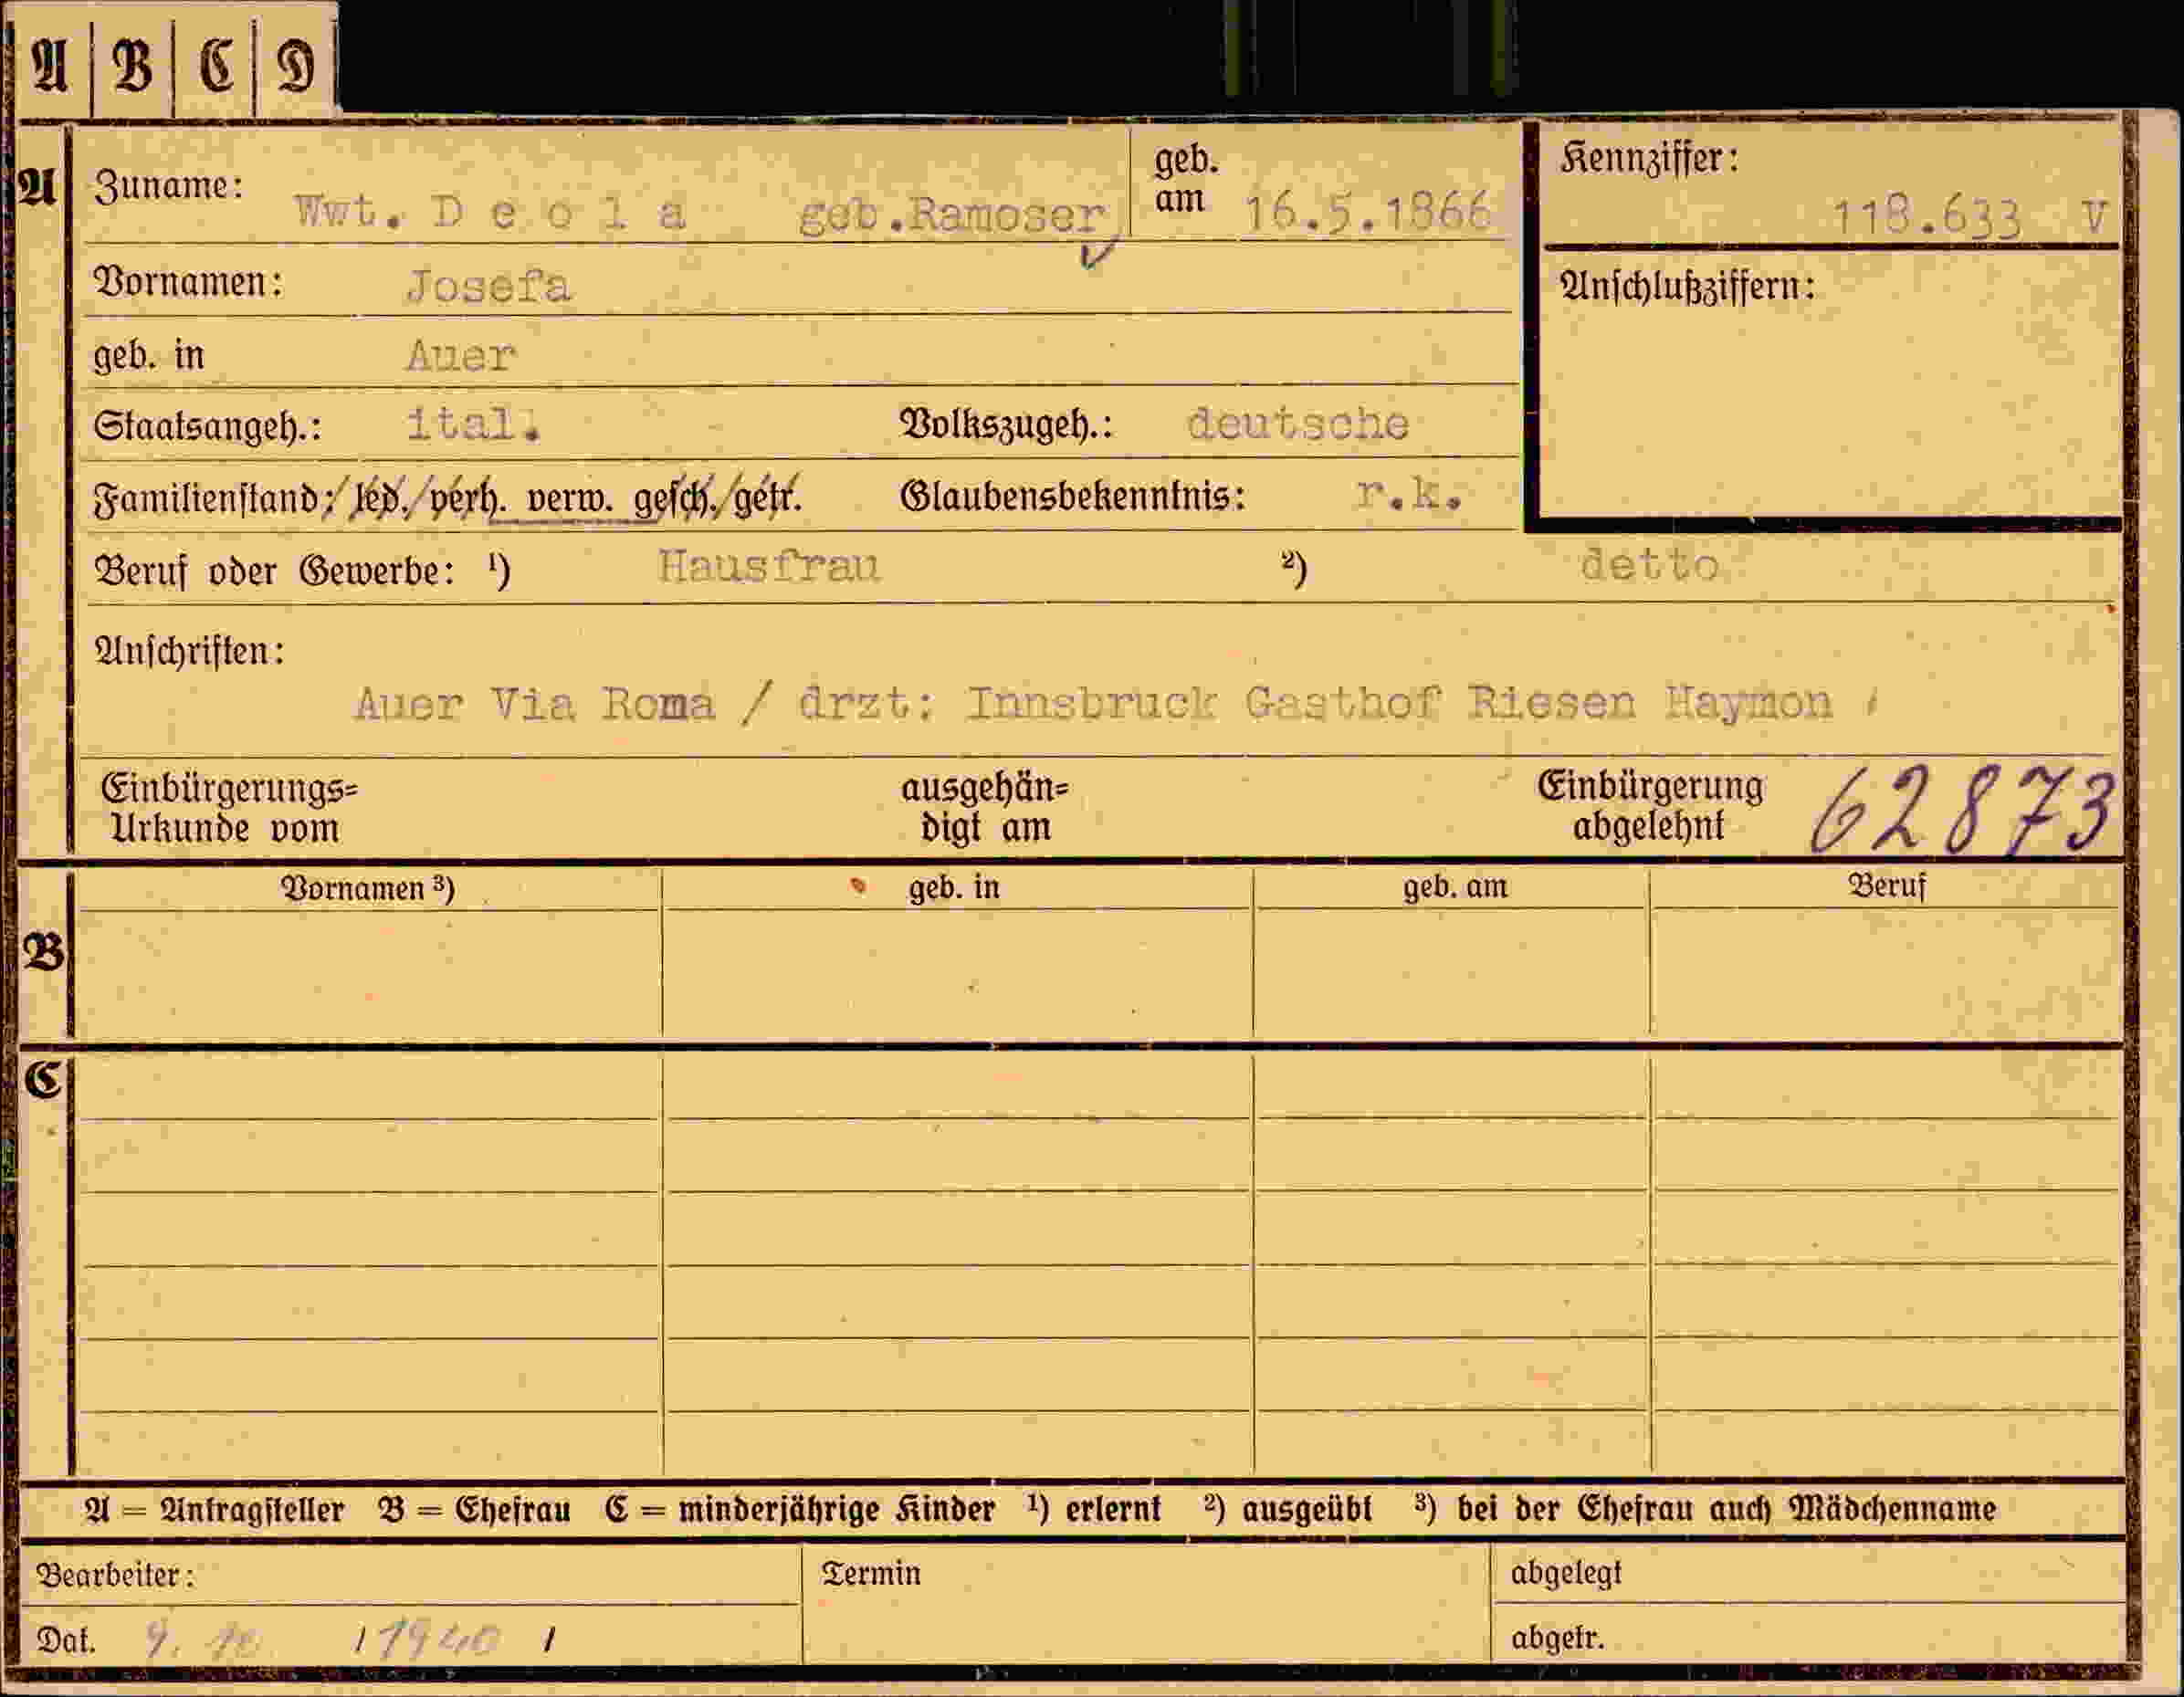 A B C D
A Zuname: Wwt. D e o l a geb.Ramoser geb. am 16.5.1866 Kennziffer: 118.633 V
Vornamen: Josefa Anschlußziffern:
geb. in Auer
Staatsangeh.: ital. Volkszugeh.: deutsche
Familienstand: led. verh. verw. gesch. getr. Glaubensbekenntnis: r.k.
Beruf oder Gewerbe: ¹) Hausfrau ²) detto
Anschriften:
Auer Via Roma / drzt: Innsbruck Gasthof Riesen Haymon
Einbürgerungs= ausgehän= Einbürgerung
Urkunde vom digt am abgelehnt 62873
Vornamen ³) geb. in geb. am Beruf
B
C
A = Antragsteller B = Ehefrau C = minderjährige Kinder ¹) erlernt ²) ausgeübt ³) bei der Ehefrau auch Mädchenname
Bearbeiter: Termin abgelegt
Dat. 1940 abgetr.